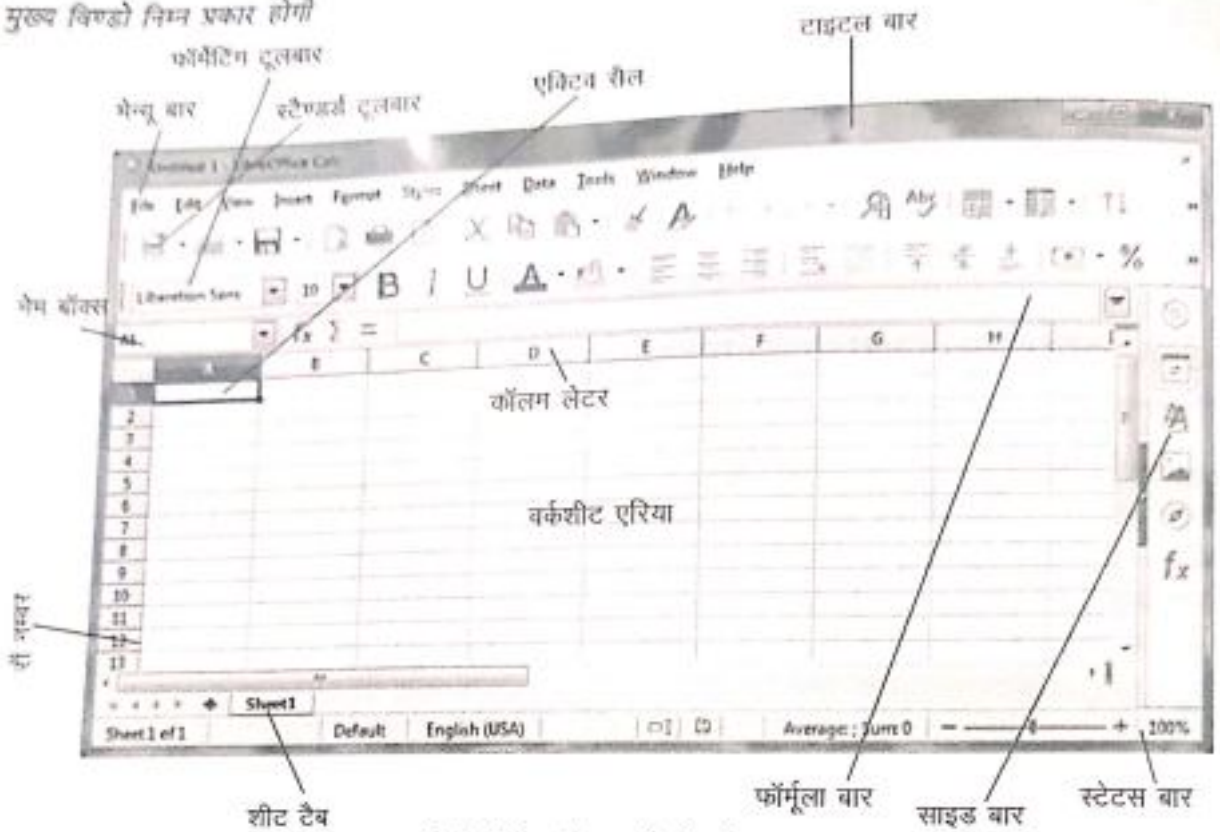 मुख्य विण्डो निम्न प्रकार होगी
टाइटल बार
फॉर्मेटिंग टूलबार
एक्टिव सैल
मेन्यू बार
स्टैण्डर्ड टूलबार
Untitled 1 - LibreOffice Calc
File Edit View Insert Format Styles Sheet Data Tools Window Help
Liberation Sans 10 B I U A %
नेम बॉक्स
A1 fx Σ =
A B C D E F G H I
कॉलम लेटर
2
3
4
5
6
वर्कशीट एरिया
7
8
9
10
11
12
13
रो नम्बर
Sheet1
Sheet 1 of 1 Default English (USA) Average: ; Sum: 0 100%
शीट टैब
फॉर्मूला बार
साइड बार
स्टेटस बार